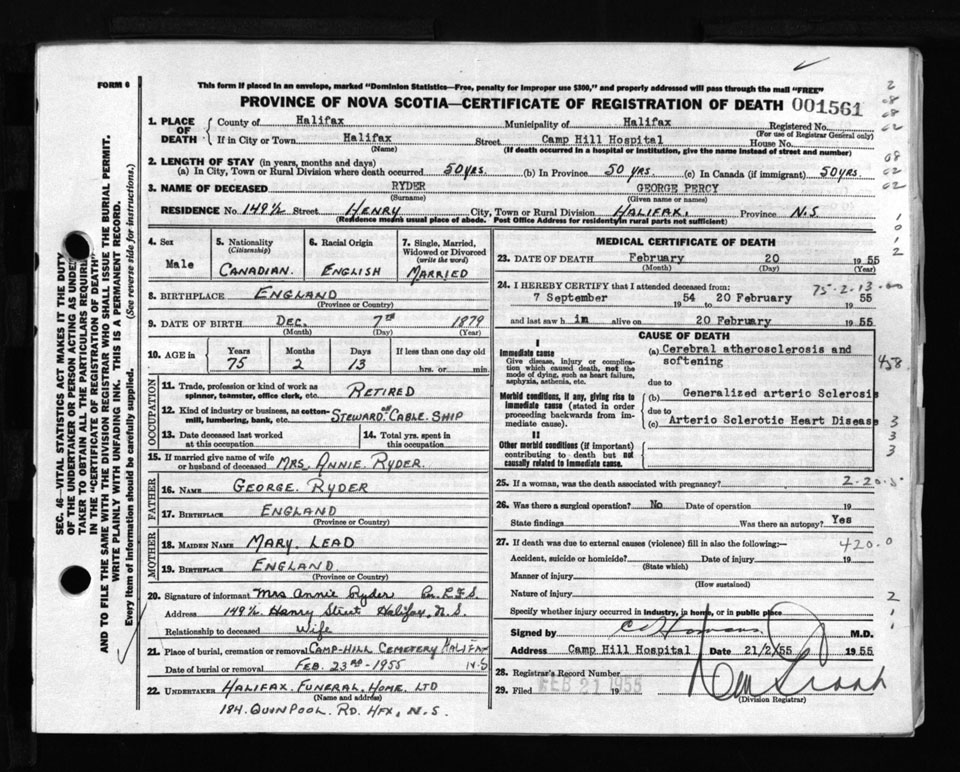 FORM 6
This form if placed in an envelope, marked "Dominion Statistics—Free, penalty for improper use $300," and properly addressed will pass through the mail "FREE"
PROVINCE OF NOVA SCOTIA—CERTIFICATE OF REGISTRATION OF DEATH 001561
1. PLACE OF DEATH
County of Halifax Municipality of Halifax Registered No.
(For use of Registrar General only)
If in City or Town Halifax Street Camp Hill Hospital House No.
(Name) (If death occurred in a hospital or institution, give the name instead of street and number)
2. LENGTH OF STAY (in years, months and days)
(a) In City, Town or Rural Division where death occurred 50 YRS. (b) In Province 50 YRS. (c) In Canada (if immigrant) 50 YRS.
3. NAME OF DECEASED RYDER GEORGE PERCY
(Surname) (Given name or names)
RESIDENCE No. 149½ Street HENRY City, Town or Rural Division HALIFAX. Province N.S
(Residence means usual place of abode. Post Office Address for residents in rural parts not sufficient)
4. Sex
Male
5. Nationality
(Citizenship)
CANADIAN.
6. Racial Origin
ENGLISH
7. Single, Married, Widowed or Divorced
(write the word)
MARRIED
8. BIRTHPLACE ENGLAND
(Province or Country)
9. DATE OF BIRTH DEC. 7TH 1879
(Month) (Day) (Year)
10. AGE in
Years Months Days If less than one day old
75 2 13 hrs. or min.
OCCUPATION
11. Trade, profession or kind of work as
spinner, teamster, office clerk, etc. RETIRED
12. Kind of industry or business, as cotton-
mill, lumbering, bank, etc. STEWARD ON CABLE SHIP
13. Date deceased last worked
at this occupation
14. Total yrs. spent in
this occupation
15. If married give name of wife
or husband of deceased MRS. ANNIE RYDER.
FATHER
16. NAME GEORGE. RYDER
17. BIRTHPLACE ENGLAND
(Province or Country)
MOTHER
18. MAIDEN NAME MARY. LEAD
19. BIRTHPLACE ENGLAND.
(Province or Country)
20. Signature of informant Mrs Annie Ryder
Address 149½ Henry Street Halifax, N.S.
Relationship to deceased Wife
21. Place of burial, cremation or removal CAMP-HILL CEMETERY HALIFAX
Date of burial or removal FEB. 23RD-1955 N.S
22. UNDERTAKER HALIFAX. FUNERAL. HOME. LTD
(Name and address)
184. QUINPOOL. RD. HFX, N.S.
MEDICAL CERTIFICATE OF DEATH
23. DATE OF DEATH February 20 1955
(Month) (Day) (Year)
24. I HEREBY CERTIFY that I attended deceased from: 75-2-13-00
7 September 1954 to 20 February 1955
and last saw him alive on 20 February 1955
CAUSE OF DEATH
I
Immediate cause
Give disease, injury or complication which caused death, not the mode of dying, such as heart failure, asphyxia, asthenia, etc.
(a) Cerebral atherosclerosis and
softening
458
due to
Morbid conditions, if any, giving rise to immediate cause (stated in order proceeding backwards from immediate cause).
(b) Generalized arterio Sclerosis
due to
(c) Arterio Sclerotic Heart Disease
II
Other morbid conditions (if important) contributing to death but not causally related to immediate cause.
25. If a woman, was the death associated with pregnancy? 2-20-5
26. Was there a surgical operation? No Date of operation 19
State findings Was there an autopsy? Yes
27. If death was due to external causes (violence) fill in also the following:— 420.0
Accident, suicide or homicide? Date of injury 19
(State which)
Manner of injury
(How sustained)
Nature of injury
Specify whether injury occurred in industry, in home, or in public place
Signed by M.D.
Address Camp Hill Hospital Date 21/2/55 1955
28. Registrar's Record Number
29. Filed FEB 21 1955 19
(Division Registrar)
SEC. 46—VITAL STATISTICS ACT MAKES IT THE DUTY
OF THE UNDERTAKER OR PERSON ACTING AS UNDER
TAKER TO OBTAIN ALL THE PARTICULARS REQUIRED
IN THE "CERTIFICATE OF REGISTRATION OF DEATH"
AND TO FILE THE SAME WITH THE DIVISION REGISTRAR WHO SHALL ISSUE THE BURIAL PERMIT.
WRITE PLAINLY WITH UNFADING INK. THIS IS A PERMANENT RECORD.
Every item of information should be carefully supplied. (See reverse side for instructions.)